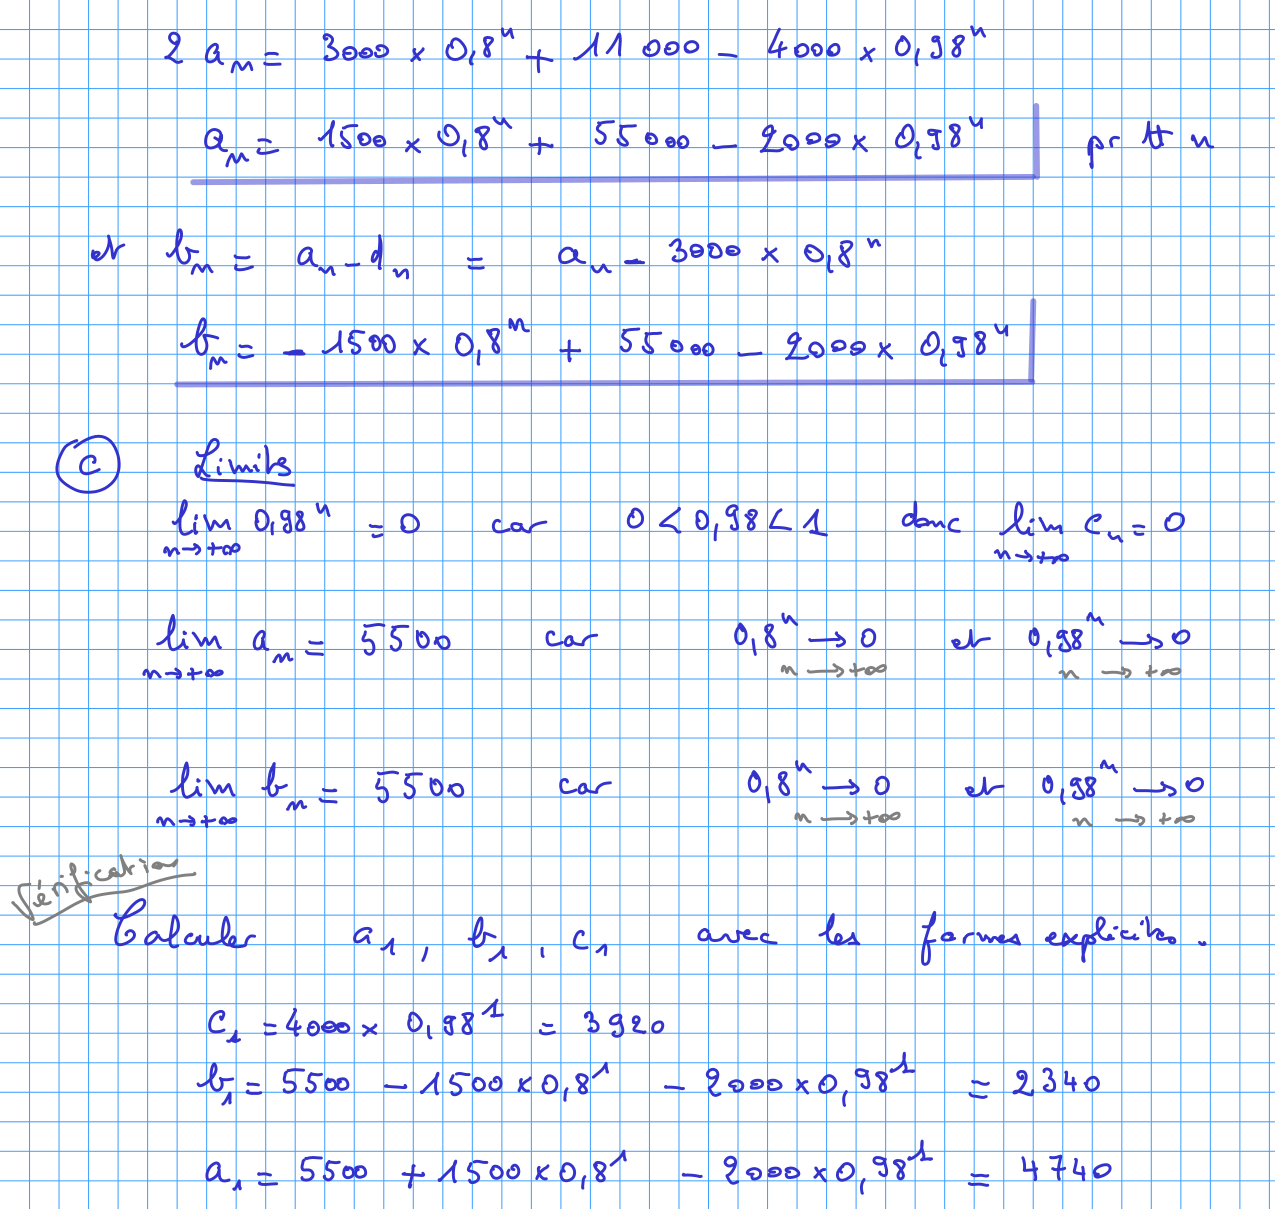 2 aₙ = 3000 × 0,8ⁿ + 11 000 − 4000 × 0,98ⁿ
aₙ = 1500 × 0,8ⁿ + 55000 − 2000 × 0,98ⁿ pr tt n
et bₙ = aₙ − dₙ = aₙ − 3000 × 0,8ⁿ
bₙ = − 1500 × 0,8ⁿ + 55000 − 2000 × 0,98ⁿ
C Limites
lim 0,98ⁿ = 0 car 0 < 0,98 < 1 donc lim cₙ = 0
n→+∞ n→+∞
lim aₙ = 5500 car 0,8ⁿ → 0 et 0,98ⁿ → 0
n→+∞ n → +∞ n → +∞
lim bₙ = 5500 car 0,8ⁿ → 0 et 0,98ⁿ → 0
n→+∞ n → +∞ n → +∞
Vérification
Calculer a₁, b₁, c₁ avec les formes explicites.
C₁ = 4000 × 0,98¹ = 3920
b₁ = 5500 − 1500 × 0,8¹ − 2000 × 0,98¹ = 2340
a₁ = 5500 + 1500 × 0,8¹ − 2000 × 0,98¹ = 4740